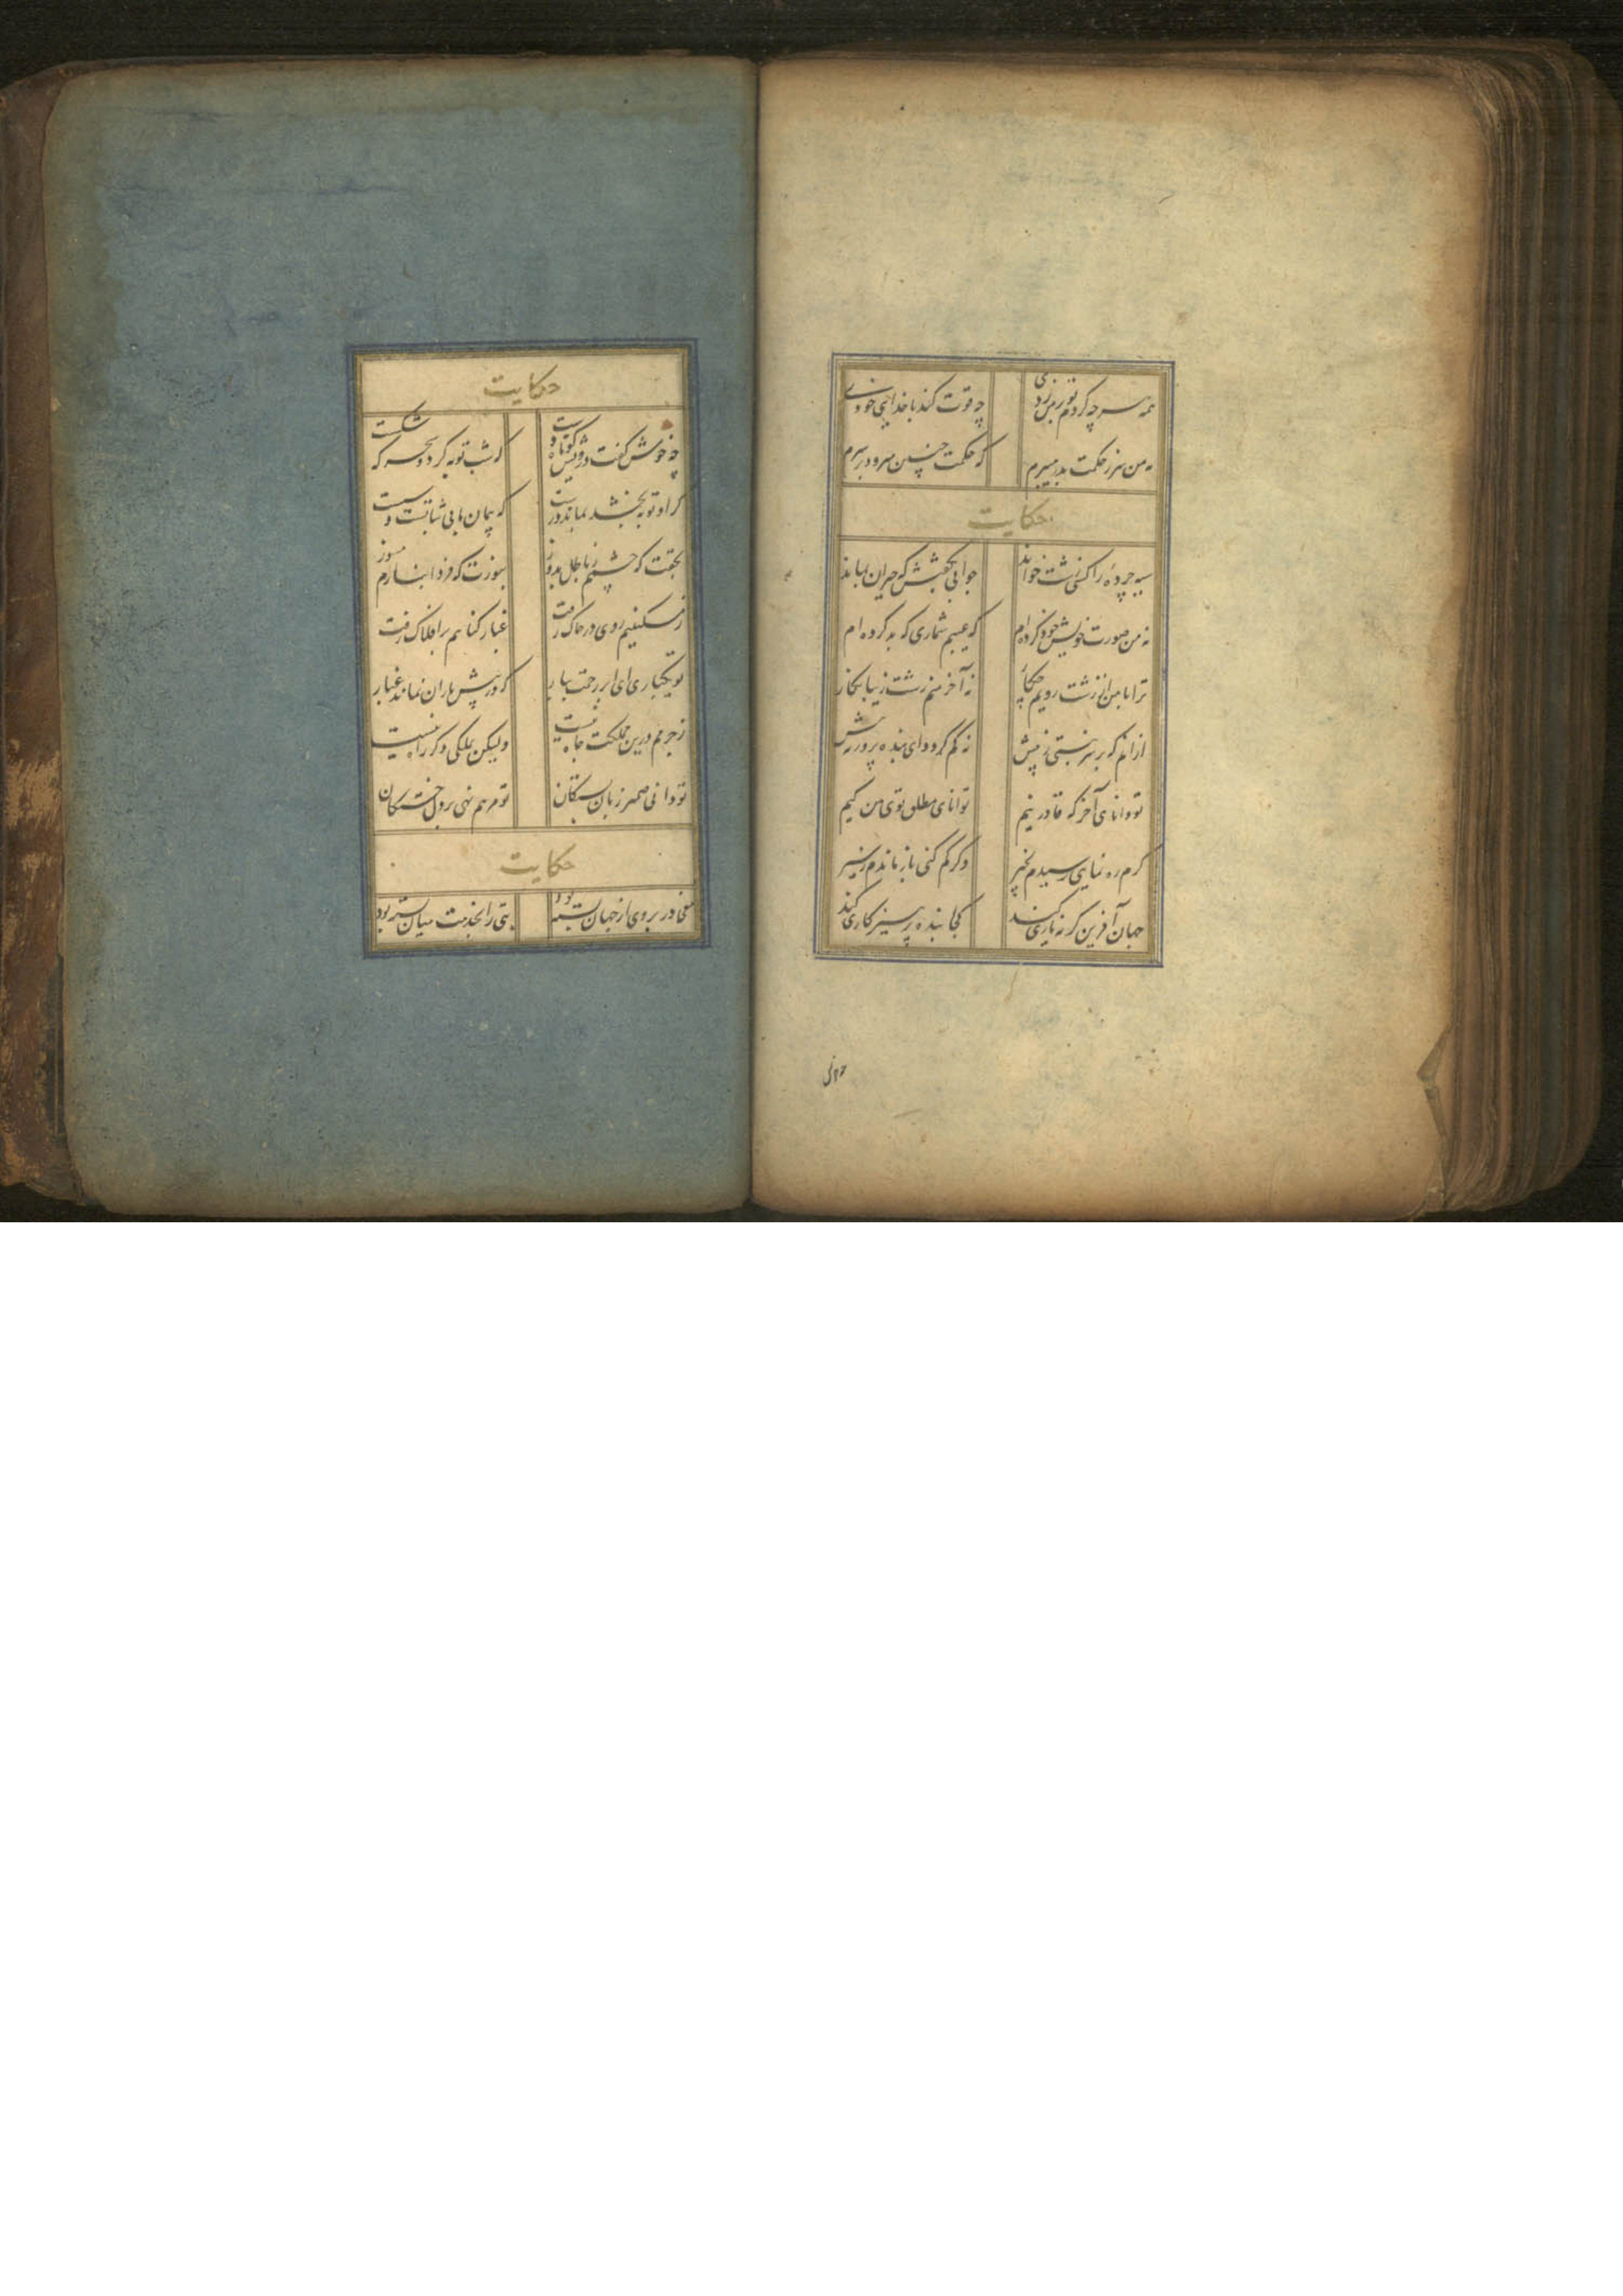 همه هرچه کردم تو بر هم زدی چه قوت کند با خدایی خودی
نه من سر ز حکمت بدر میبرم که حکمت چنین میرود بر سرم
حکایت
سیه چرده را کسی زشت خواند جوابی بگفتش که حیران بماند
نه من صورت خویش خود کرده ام که عیبم شماری که بد کرده ام
ترا با من از زشت رویم چکار نه آخر منم زشت زیبا نگار
ازانم که بر سر نبشتی ز پیش نه کم کردد ای بنده پرور نه بیش
تو دانای آخر که قادر نیم توانای مطلق توی من کیم
کرم ره نمایی رسیدم بخیر وکر کم کنی باز ماندم ز سیر
جهان آفرین کر نه یاری کند کجا بنده پرهیز کاری کند
چه خوش
حکایت
چه خوش گفت درویش کوتاه دست که شب توبه کرد و سحر که شکست
کر او توبه بخشد بماند درست که پیمان ما بی ثباتست و سست
بحقت که چشمم ز باطل بدوز بنورت که فردا بنارم مسوز
ز مسکنیم روی در خاک رفت غبار کناهم بر افلاک رفت
تو یکباری ای ابر رحمت ببار که در پیش باران نماند غبار
ز جرمم درین مملکت جاه نیست ولیکن بملکی دکر راه نیست
تو دانی ضمیر زبان بستکان تو مرهم نهی بر دل خستکان
حکایت
مغی در بروی از جهان بسته بود بتی را بخدمت میان بسته بود